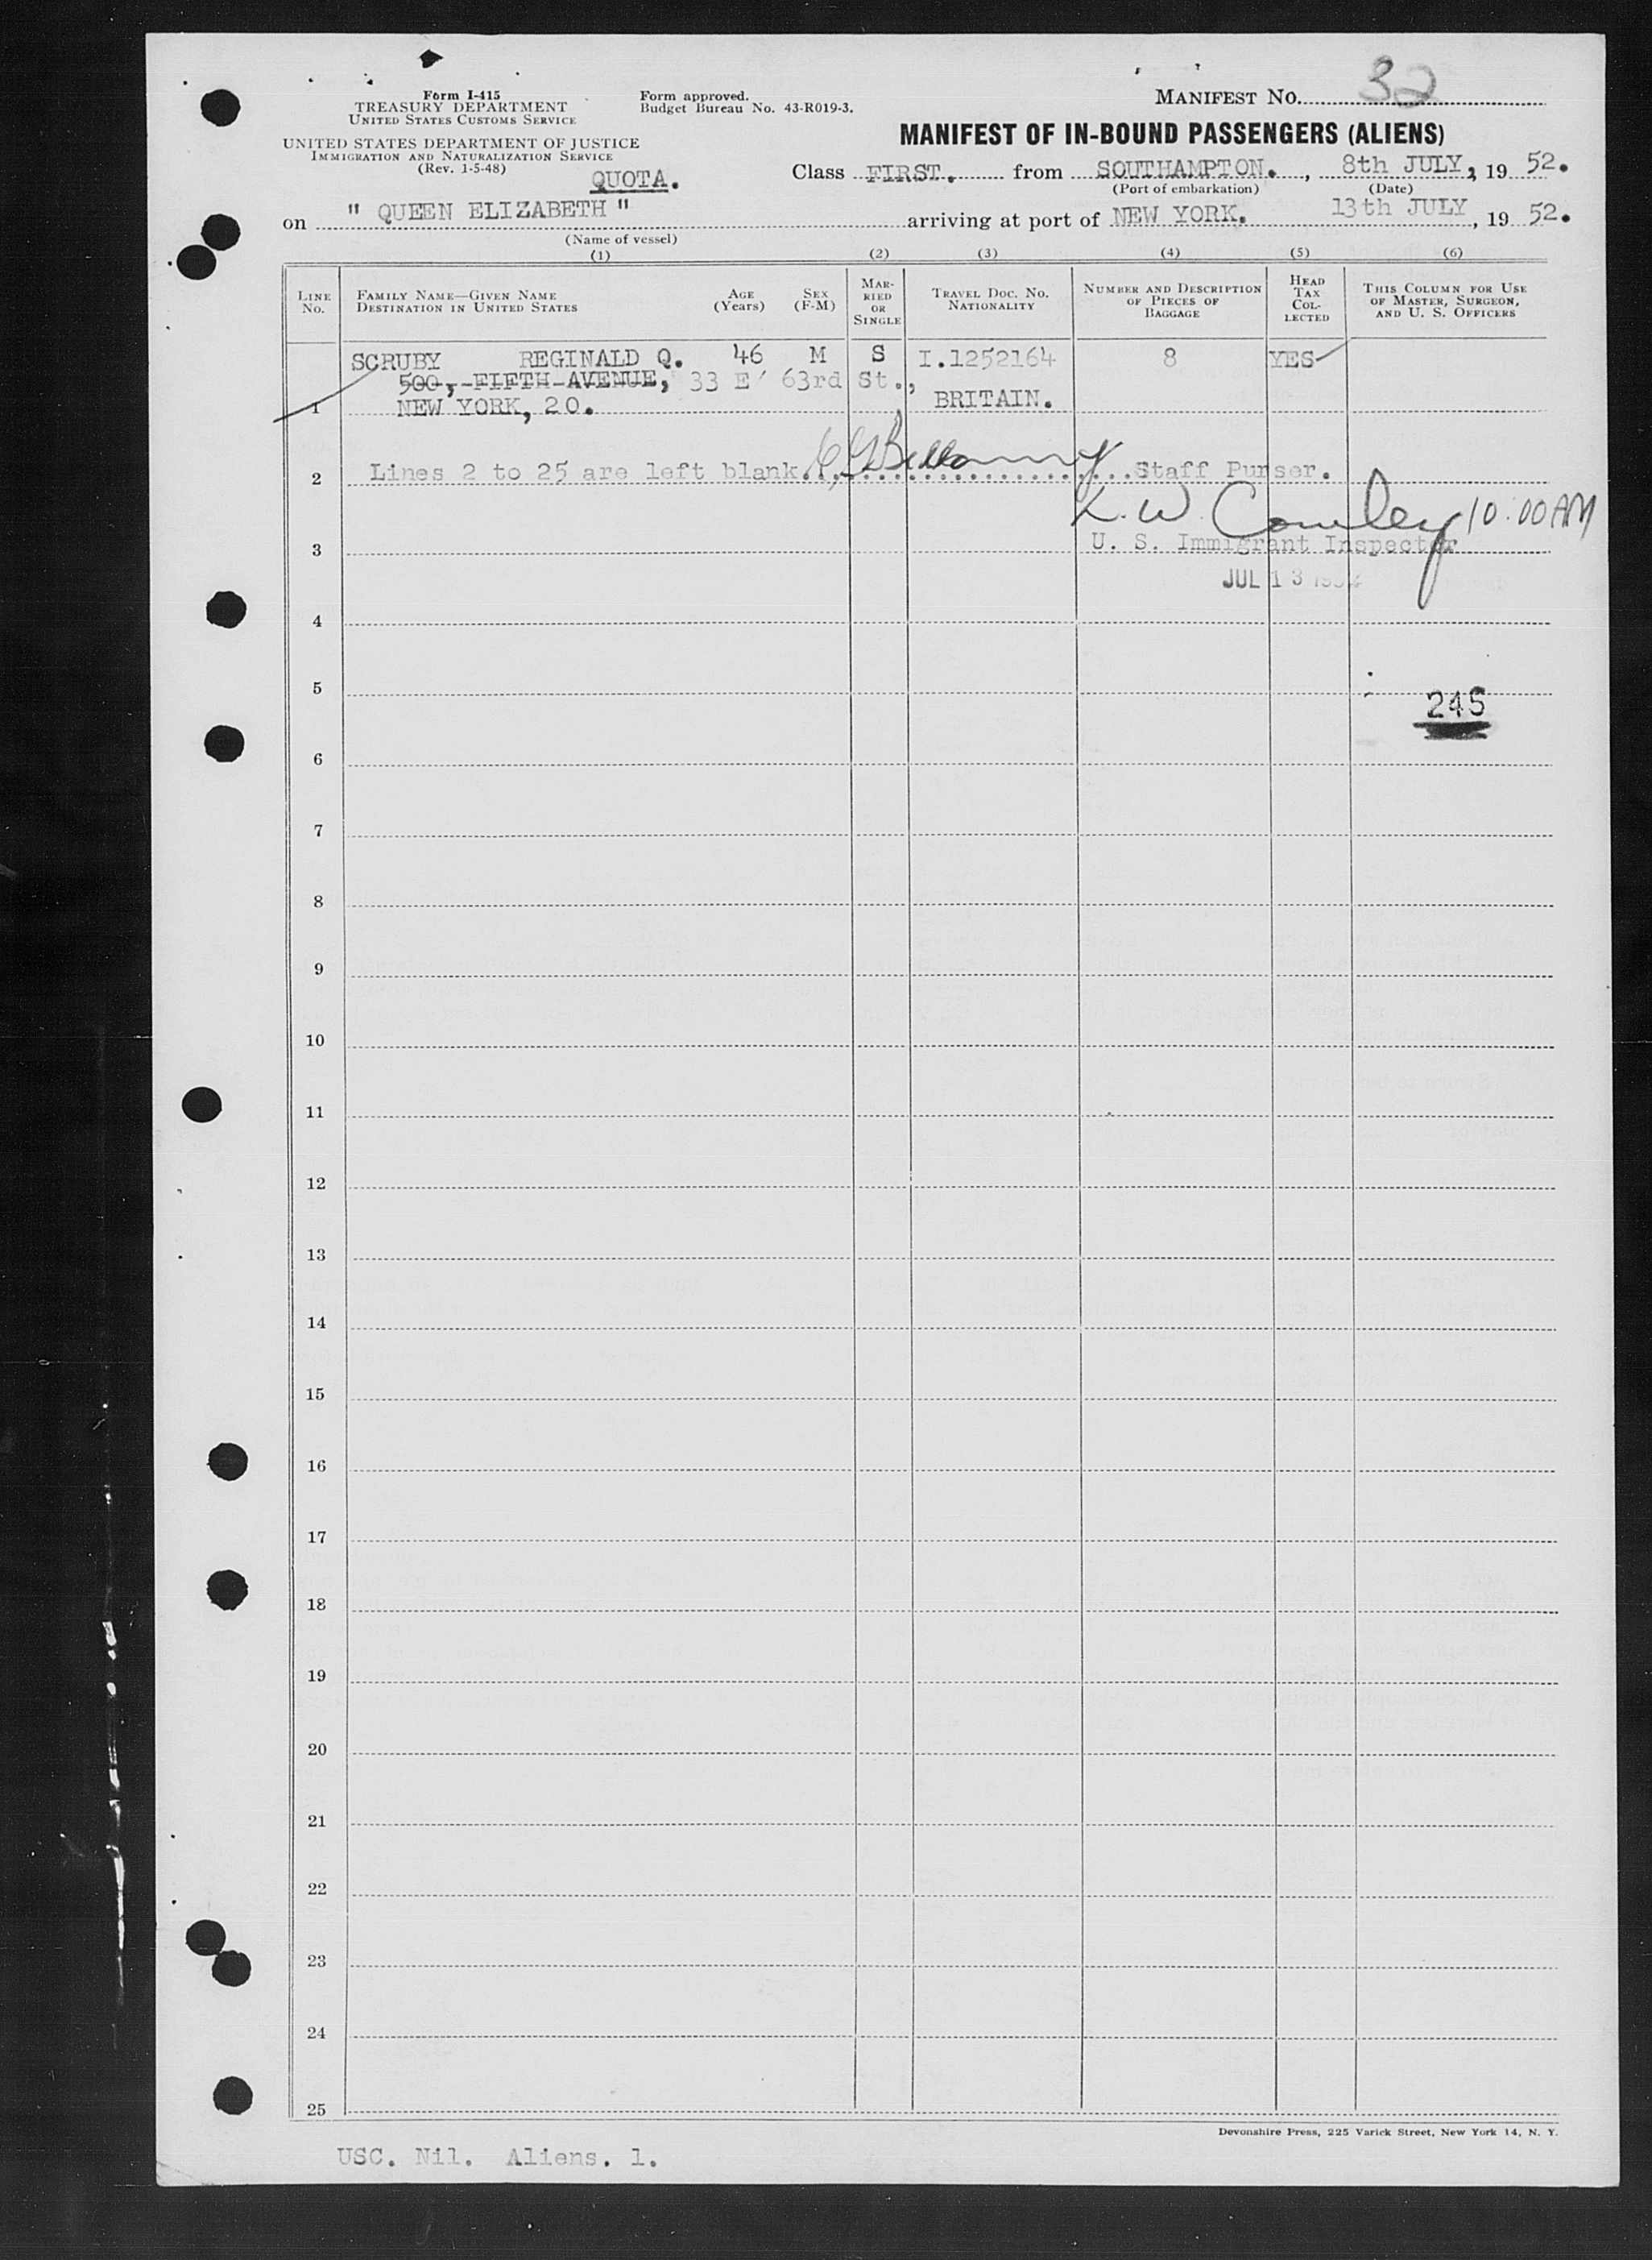 Form I-415
TREASURY DEPARTMENT
UNITED STATES CUSTOMS SERVICE
UNITED STATES DEPARTMENT OF JUSTICE
IMMIGRATION AND NATURALIZATION SERVICE
(Rev. 1-5-48)
QUOTA.
Form approved.
Budget Bureau No. 43-R019-3.
MANIFEST NO. 32
MANIFEST OF IN-BOUND PASSENGERS (ALIENS)
Class FIRST. from SOUTHAMPTON. , 8th JULY, 19 52.
(Port of embarkation) (Date)
on " QUEEN ELIZABETH " arriving at port of NEW YORK. 13th JULY, 19 52.
(Name of vessel)
(1) (2) (3) (4) (5) (6)
LINE NO. FAMILY NAME—GIVEN NAME DESTINATION IN UNITED STATES AGE (Years) SEX (F-M) MARRIED OR SINGLE TRAVEL DOC. NO. NATIONALITY NUMBER AND DESCRIPTION OF PIECES OF BAGGAGE HEAD TAX COLLECTED THIS COLUMN FOR USE OF MASTER, SURGEON, AND U. S. OFFICERS
SCRUBY REGINALD Q. 46 M S I.1252164 8 YES
500, FIFTH AVENUE, 33 E' 63rd St.,
1 NEW YORK, 20. BRITAIN.
2 Lines 2 to 25 are left blank. Bellamy Staff Purser.
L. W. Cowley 10:00 AM
3 U. S. Immigrant Inspector
JUL 13 1952
4
5
245
6
7
8
9
10
11
12
13
14
15
16
17
18
19
20
21
22
23
24
25
Devonshire Press, 225 Varick Street, New York 14, N. Y.
USC. Nil. Aliens. 1.